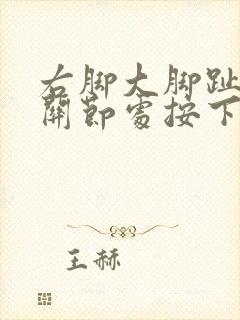 右脚大脚趾
關節處按下
王赫